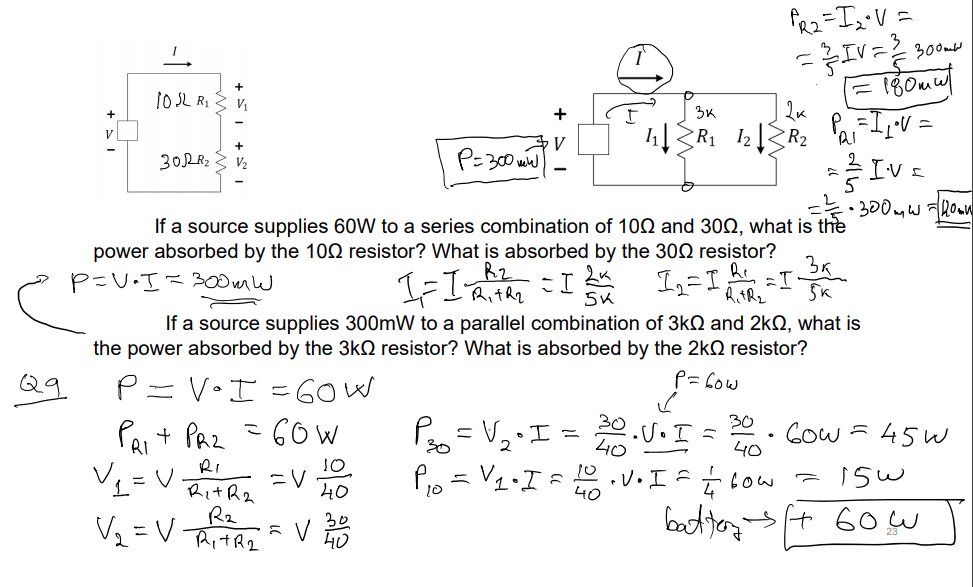 P_R2 = I₂·V =
= 3/5 IV = 3/5 300mW
= 180mW
P_R1 = I₁·V =
= 2/5 I·V =
= 2/5 · 300mW =
I
10Ω R₁
+
V₁
−
+
V
−
30Ω R₂
+
V₂
−
I
I
+
V
−
P=300mW
I₁
3K
R₁
I₂
2K
R₂
If a source supplies 60W to a series combination of 10Ω and 30Ω, what is the
power absorbed by the 10Ω resistor? What is absorbed by the 30Ω resistor?
P=V·I = 300mW
I₁ = I R₂/(R₁+R₂) = I 2K/5K
I₂ = I R₁/(R₁+R₂) = I 3K/5K
If a source supplies 300mW to a parallel combination of 3kΩ and 2kΩ, what is
the power absorbed by the 3kΩ resistor? What is absorbed by the 2kΩ resistor?
Q9
P = V·I = 60W
P_R1 + P_R2 = 60W
V₁ = V R₁/(R₁+R₂) = V 10/40
V₂ = V R₂/(R₁+R₂) = V 30/40
P=60W
P₃₀ = V₂·I = 30/40 ·V·I = 30/40 · 60W = 45W
P₁₀ = V₁·I = 10/40 ·V·I = 1/4 60W = 15W
battery → + 60W
23